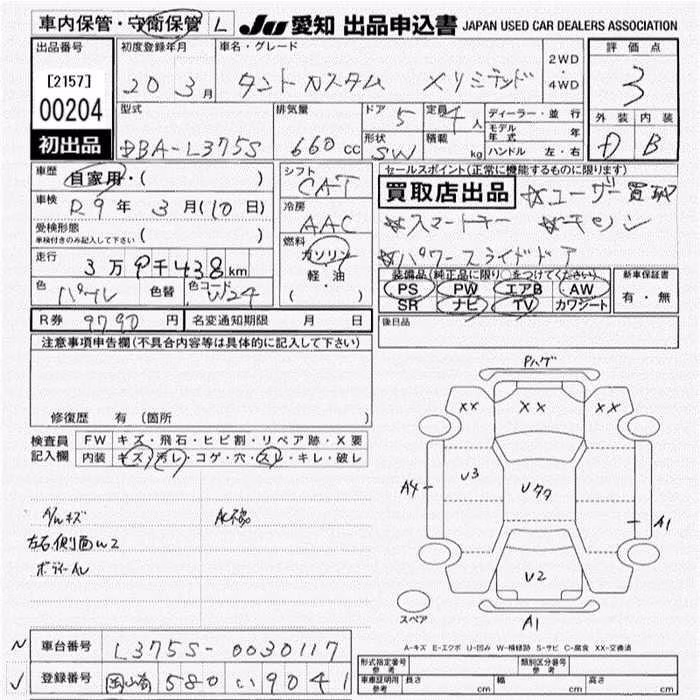 車内保管・守衛保管 L JU 愛知 出品申込書 JAPAN USED CAR DEALERS ASSOCIATION
出品番号 初度登録年月 車名・グレード 2WD・4WD 評価点
[2157] 20 3月 タントカスタム Xリミテッド 3
00204 型式 排気量 ドア 5 定員 4人 ディーラー・並行 外装 内装
モデル年式 年
初出品 DBA-L375S 660cc 形状 SW 積載 kg ハンドル 左・右 D B
車歴 自家用・( ) シフト CAT セールスポイント(正常に機能するものに限ります)
車検 R9年3月(10日) 冷房 AAC 買取店出品 ☆ユーザー買取
受検形態 ( ) ☆スマートキー ☆モセン
車検付きのみ記入して下さい
燃料 ガソリン ☆パワースライドドア
走行 3万9千438km 軽・油 装備品(純正品に限り○をつけてください) 新車保証書
色 パール 色替 色コード W24 ( ・ ) PS PW エアB AW 有・無
SR ナビ TV カワシート
R券 9790円 名変通知期限 月 日 後日品
注意事項申告欄(不具合内容等は具体的に記入して下さい)
修復歴 有 (箇所 )
検査員記入欄 FW キズ・飛石・ヒビ割・リペア跡・X要
内装 キズ・汚レ・コゲ・穴・スレ・キレ・破レ
A/Wキズ
左右側面W2
ボディーAU
Pハゲ
XX XX XX
U3
A4 U77 A1
U2
スペア
A1
A-キズ E-エクボ U-凹み W-補修跡 S-サビ C-腐食 XX-交換済
N 車台番号 L375S-0030117
✓ 登録番号 岡山 580 い 9041
形式指定番号 参考 類別区分番号 参考
車庫証明用 参考 長さ cm 幅 cm 高さ cm